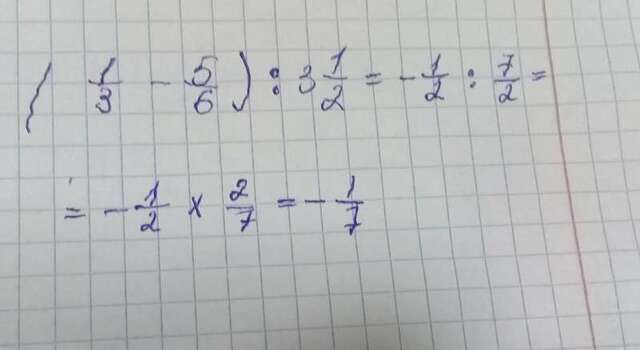 ( 1/3 - 5/6 ) : 3 1/2 = - 1/2 : 7/2 =
= - 1/2 × 2/7 = - 1/7